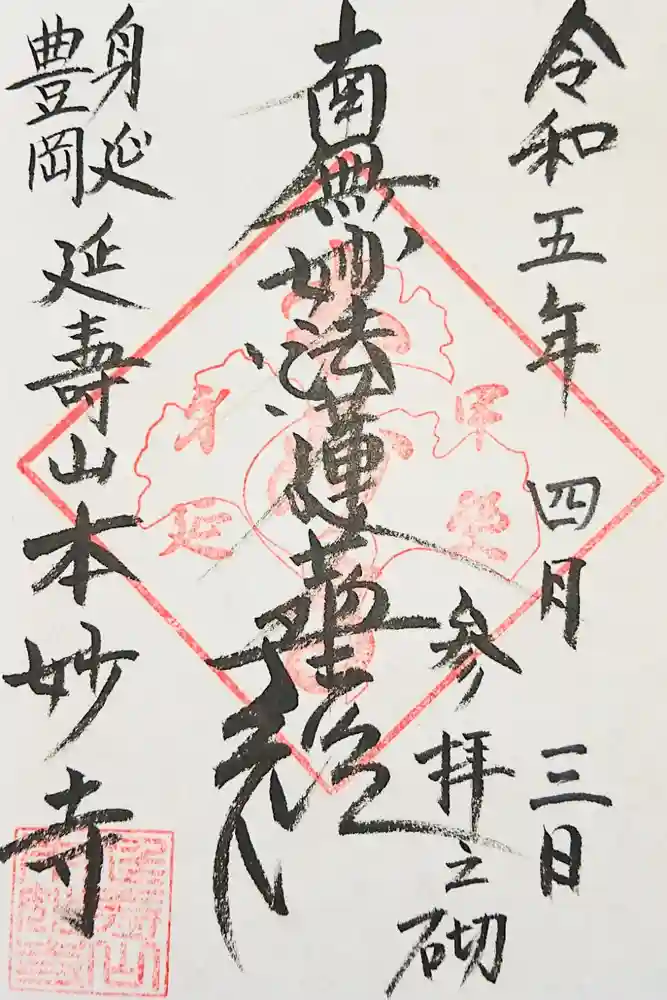 令和五年 四月 三日
参拝之砌
南無妙法蓮華経
身延
豊岡
延壽山本妙寺
甲斐
身延